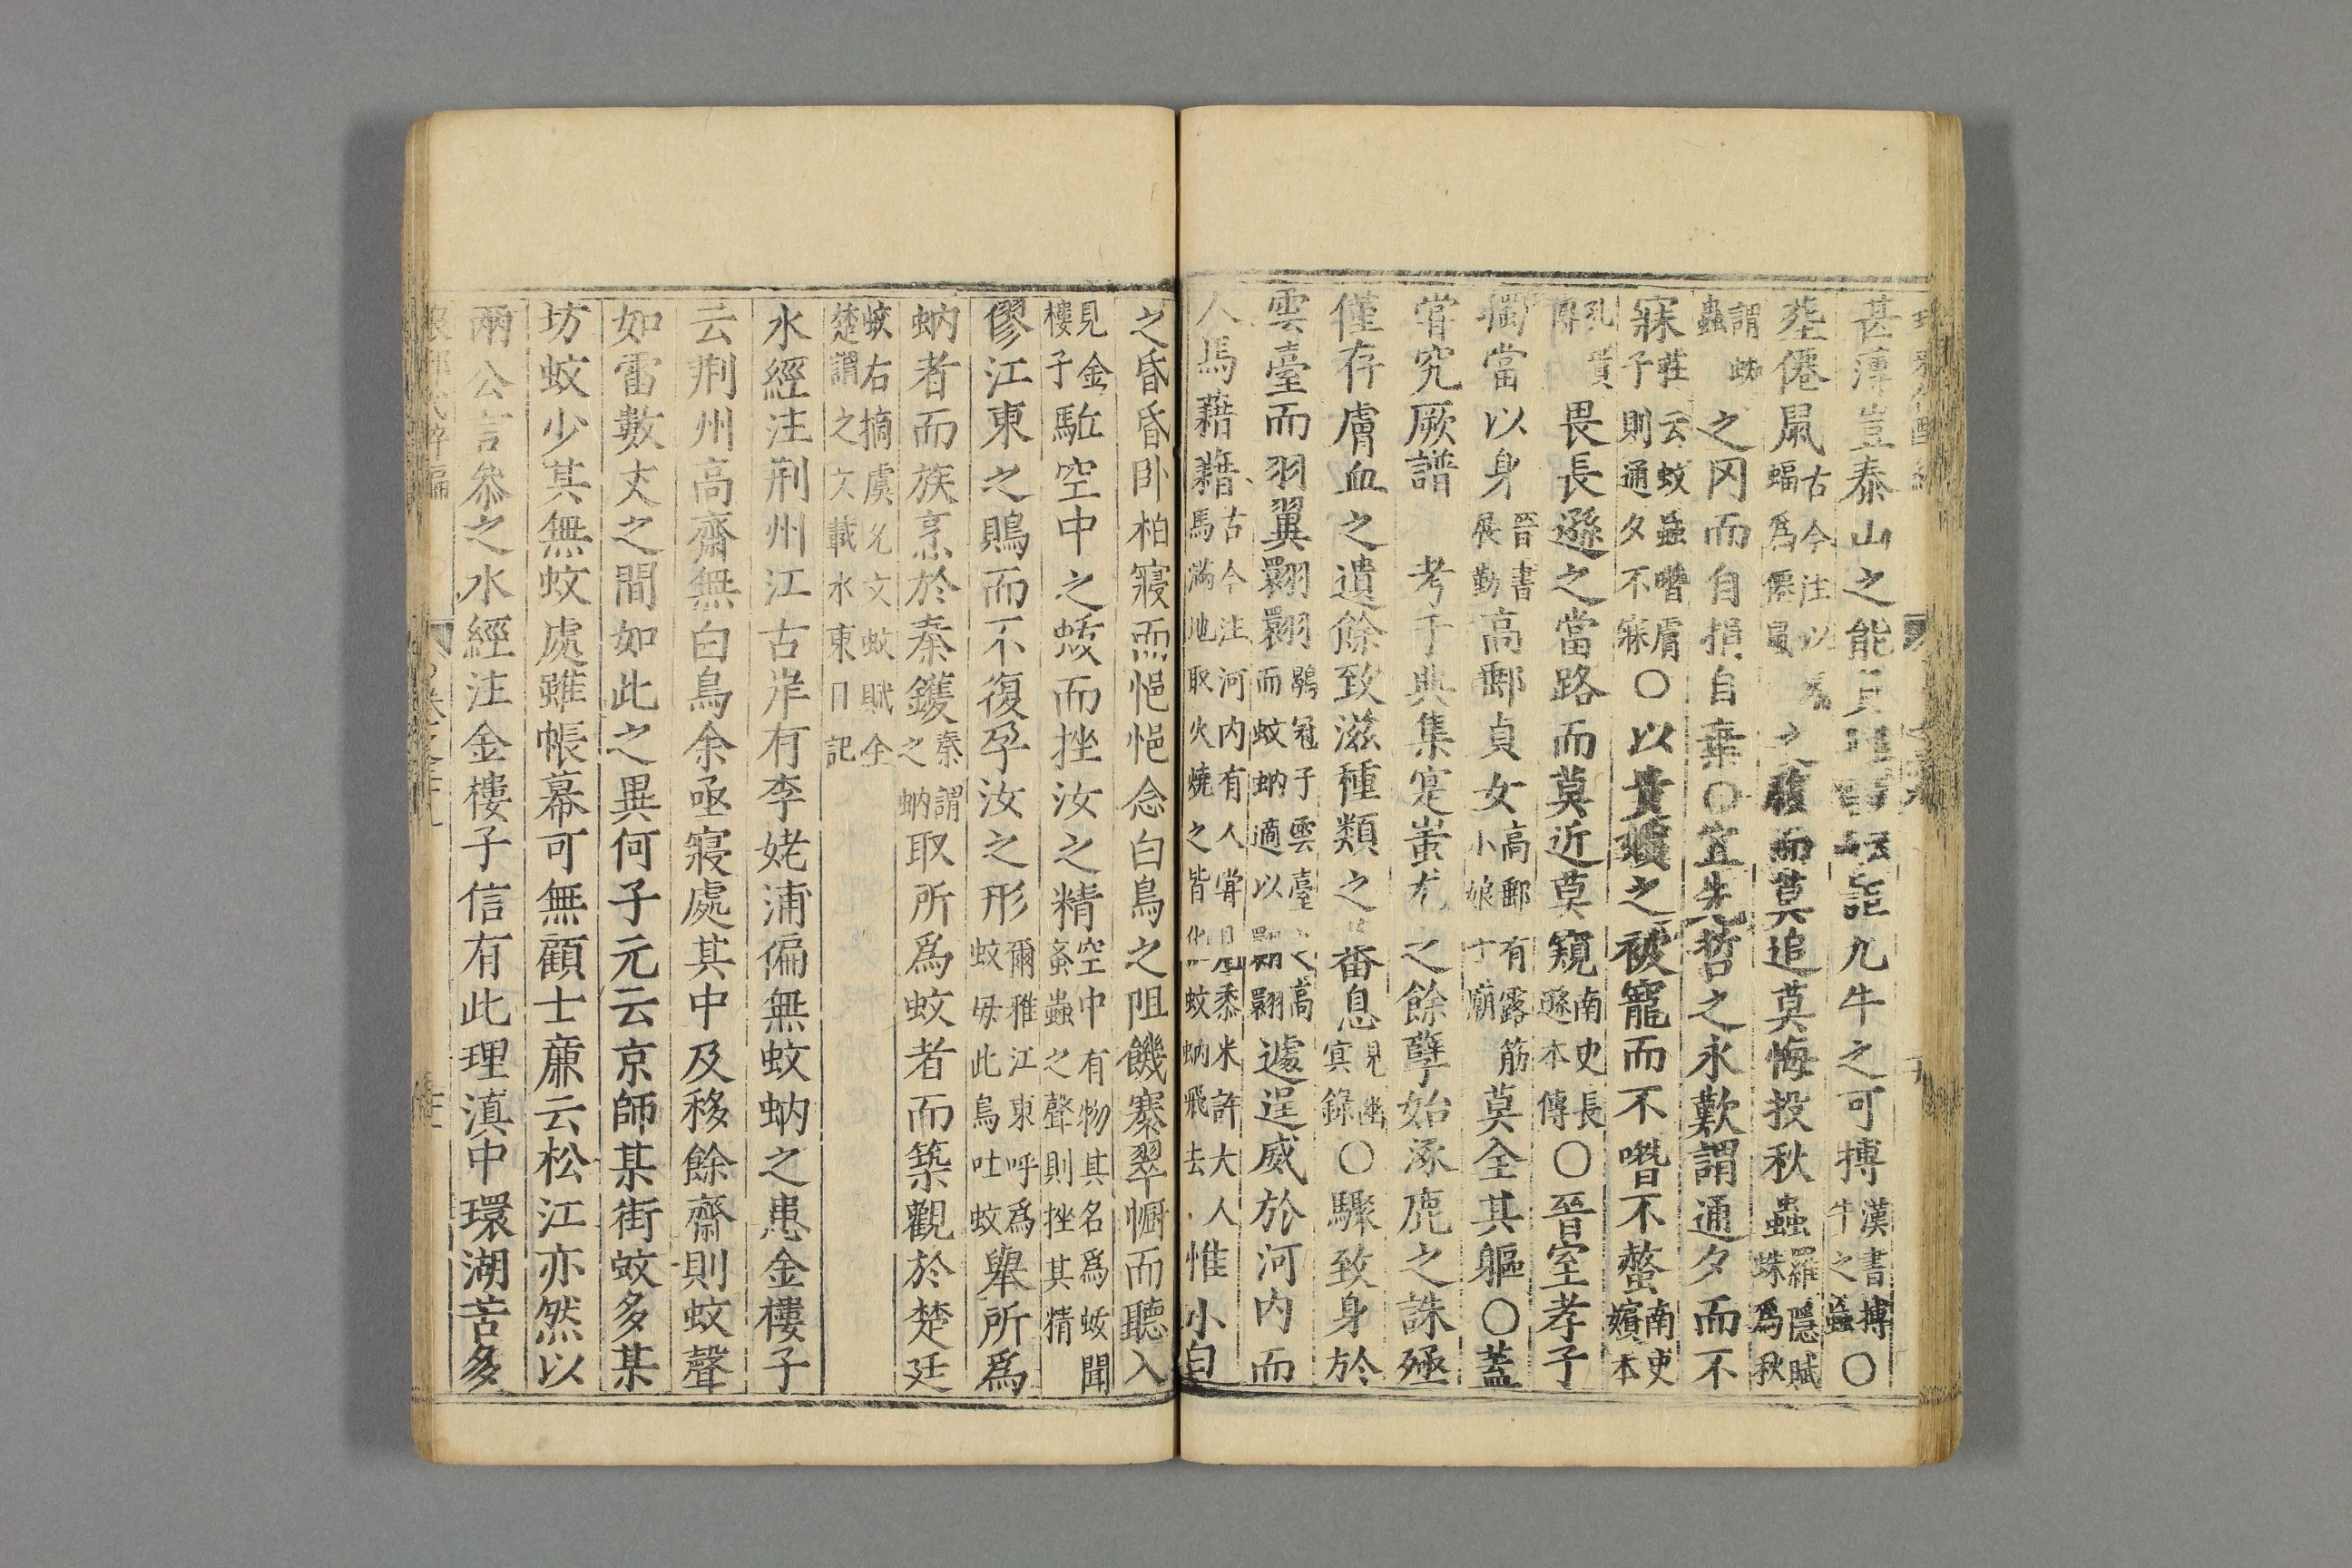 甚薄豈泰山之能詎九牛之可搏漢書搏牛之蝱〇
墜僊鼠古今注以蝠爲僊鼠之後而莫追莫悔投秋蟲羅隱賦蛛爲秋
蟲謂蛛之罔而自損自棄〇宜先哲之永歎謂通夕而不
寐莊子云蚊䖟噆膚則通夕不寐〇以貴嬪之被寵而不噆不螫南史嬪本
傳孔賁畏長遜之當路而莫近莫窺南史長遜本傳〇晉室孝子
獨當以身晉書展勤高郵貞女高郵有露筋小娘子廟莫全其軀〇蓋
嘗究厥譜考于典集寔蚩尤之餘孽始涿鹿之誅殛
僅存膚血之遺餘致滋種類之蕃息見幽冥錄〇驟致身於
雲臺而羽翼翾翾鶡冠子雲臺之高而蚊蚋適以翾翾遽逞威於河內而
人馬藉藉古今注河內有人嘗見黍米許大人馬滿地取火燒之皆化蚊蚋飛去惟小白
之昏昏卧柏寢而悒悒念白鳥之阻饑褰翠幮而聽入
見金樓子駈空中之蚿而挫汝之精空中有物其名爲蚿聞蚉䖟之聲則挫其精
僇江東之鷏而不復孕汝之形爾雅江東呼爲蚊母此鳥吐蚊舉所爲
蚋者而族烹於秦鑊秦謂之蚋取所爲蚊者而築觀於楚廷
楚謂之蚊右摘虞允文蚊賦全文載水東日記
水經注荆州江古岸有李姥浦偏無蚊蚋之患金樓子
云荆州高齋無白鳥余亟寢處其中及移餘齋則蚊聲
如雷數丈之間如此之異何子元云京師某街蚊多某
坊蚊少其無蚊處雖帳幕可無顧士廉云松江亦然以
兩公言叅之水經注金樓子信有此理滇中環湖苦多